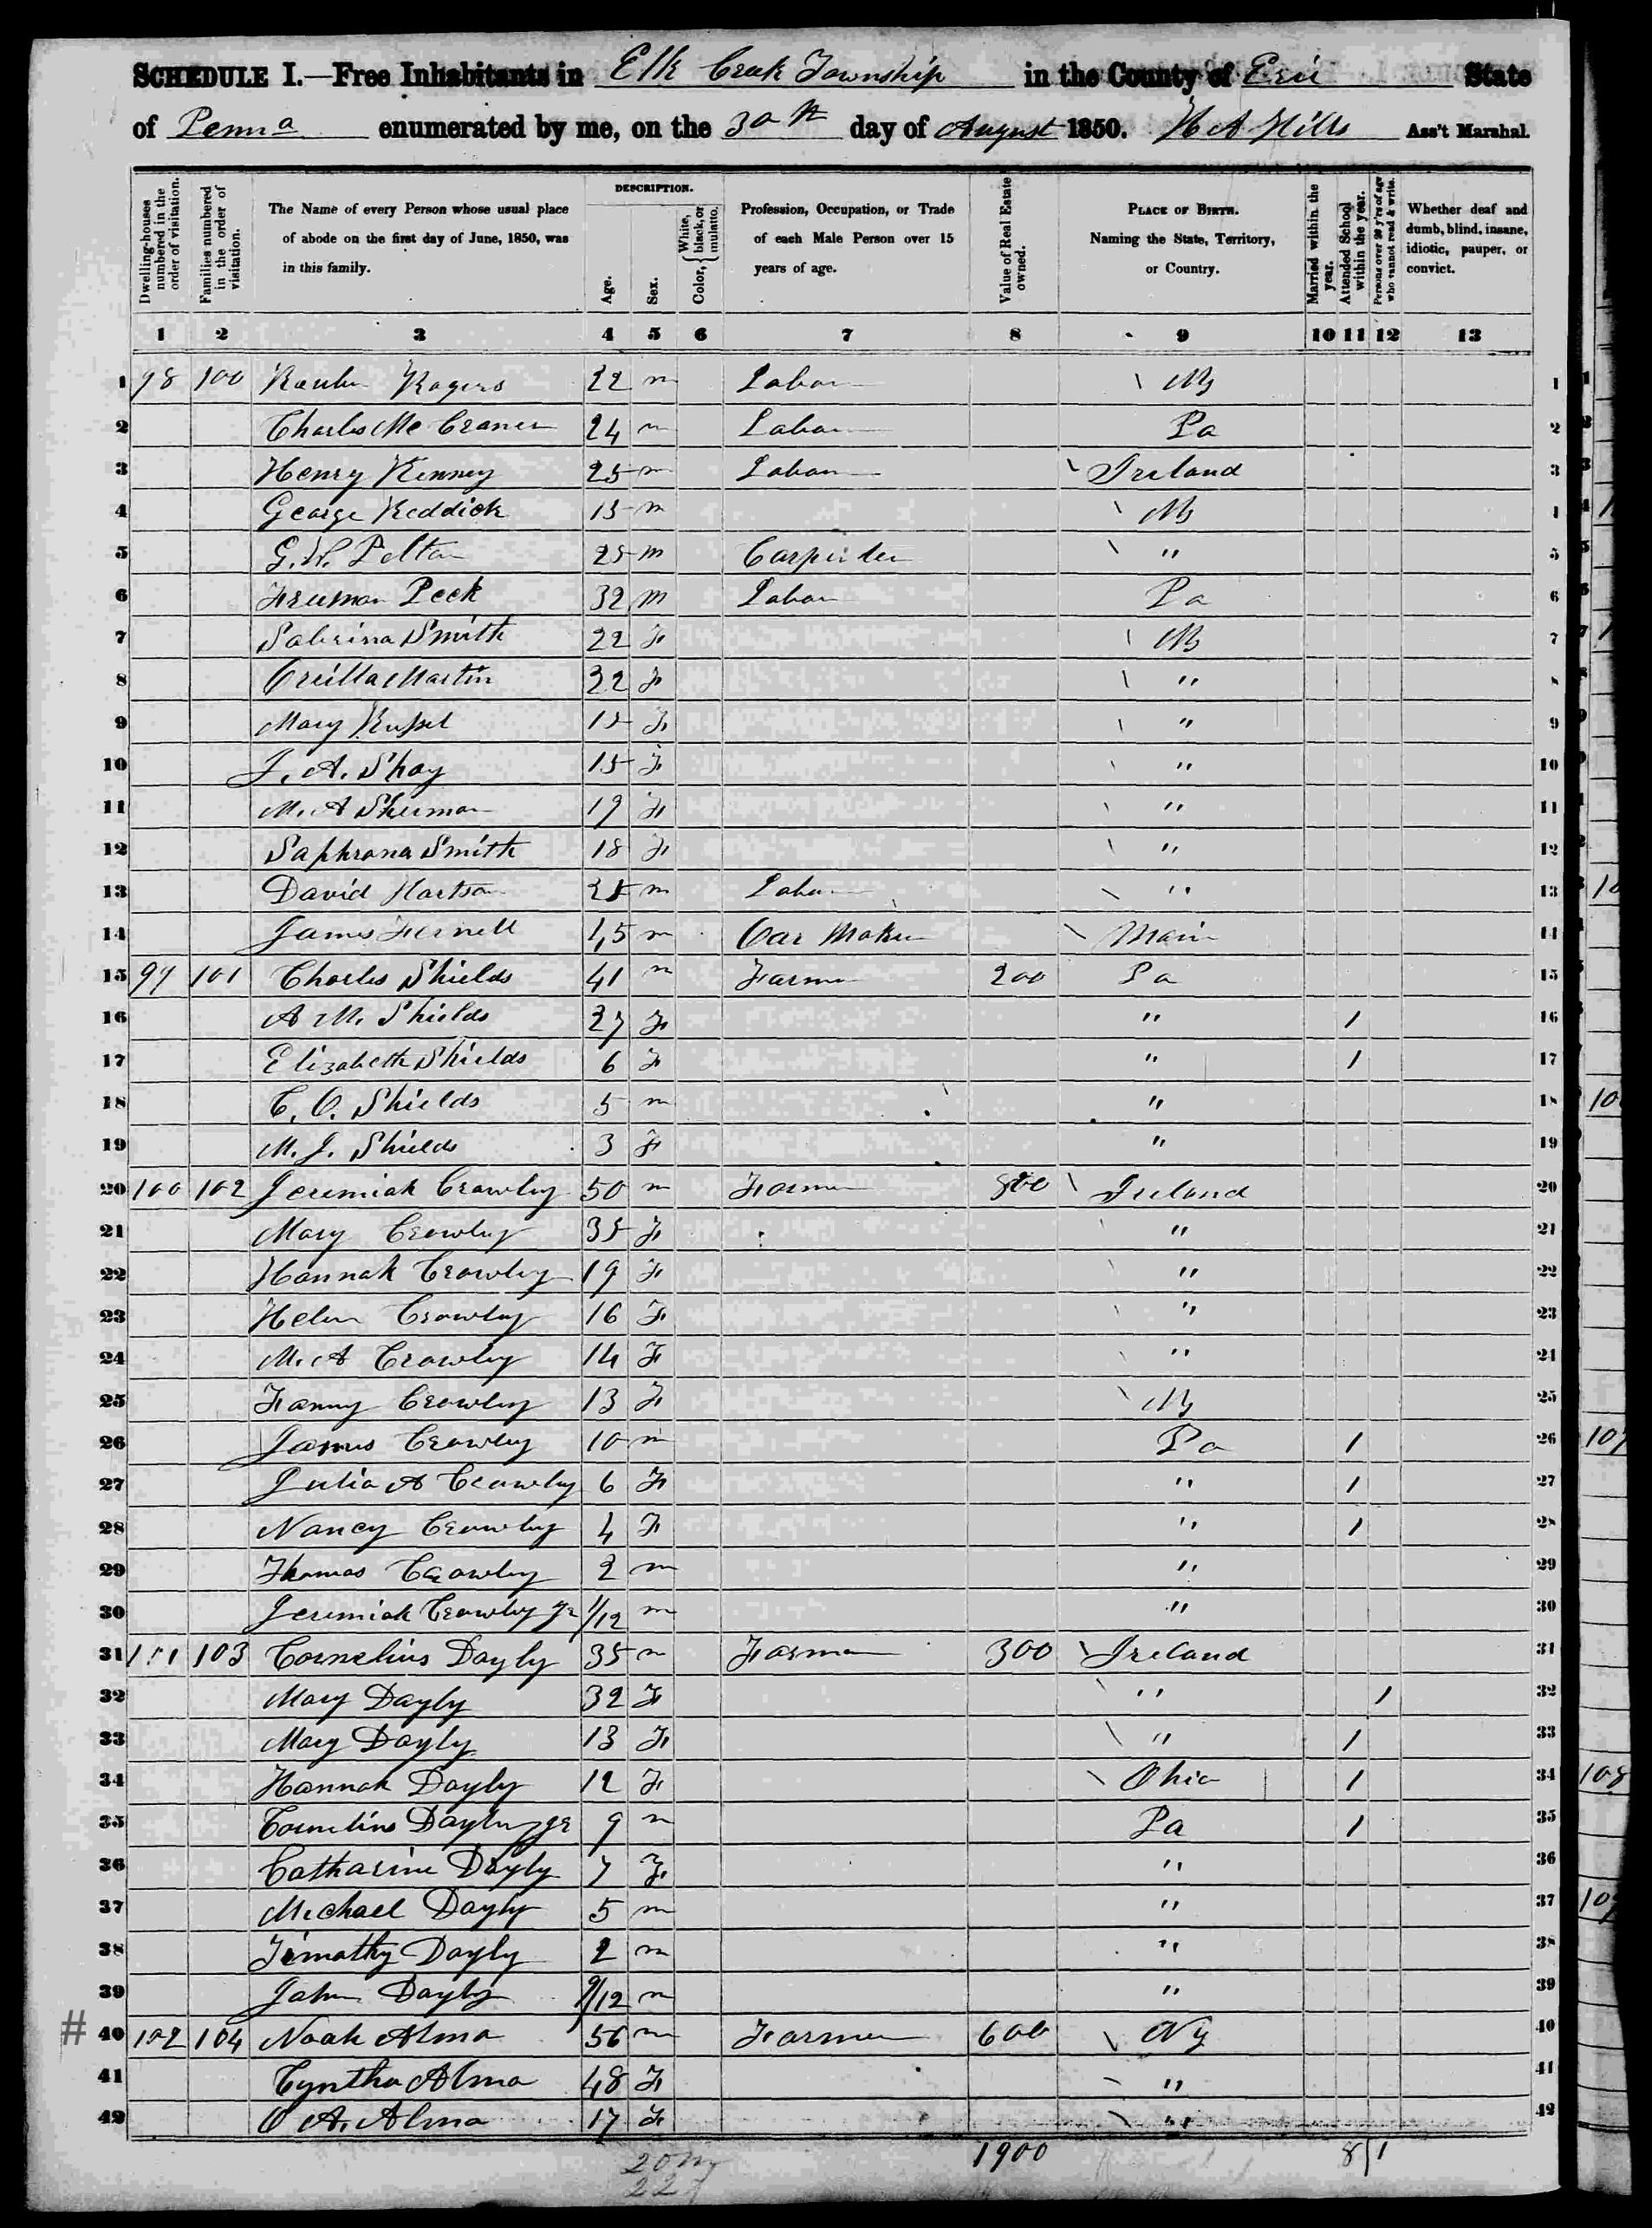 SCHEDULE I.—Free Inhabitants in Elk Creek Township in the County of Erie State
of Penna enumerated by me, on the 30th day of August 1850. Ass't Marshal.
Dwelling-houses numbered in the order of visitation.
Families numbered in the order of visitation.
The Name of every Person whose usual place of abode on the first day of June, 1850, was in this family.
DESCRIPTION.
Age.
Sex.
Color, { White, black, or mulatto.
Profession, Occupation, or Trade of each Male Person over 15 years of age.
Value of Real Estate owned.
PLACE OF BIRTH. Naming the State, Territory, or Country.
Married within the year.
Attended School within the year.
Persons over 20 y'rs of age who cannot read & write.
Whether deaf and dumb, blind, insane, idiotic, pauper, or convict.
1 2 3 4 5 6 7 8 9 10 11 12 13
1 98 100 Rogers 22 m Labor Ny 1
2 Charles 24 m Labor Pa 2
3 Henry Kenney 25 m Labor Ireland 3
4 George Reddick 15 m Ny 4
5 Pelton 25 m Carpenter " 5
6 Freeman Peck 32 m Labor Pa 6
7 Sabrina Smith 22 F Ny 7
8 Martin 32 F " 8
9 Mary Russel 15 F " 9
10 J. A. Shay 15 F " 10
11 M. A Sherman 19 F " 11
12 Saphrona Smith 18 F " 12
13 David Hartson 25 m Labor " 13
14 James Fernell 45 m Oar Maker Main 14
15 99 101 Charles Shields 41 m Farmer 200 Pa 15
16 A M. Shields 27 F " 1 16
17 Elizabeth Shields 6 F " 1 17
18 C. O. Shields 5 m " 18
19 M. J. Shields 3 F " 19
20 100 102 Jeremiah Crowley 50 m Farmer 800 Ireland 20
21 Mary Crowley 35 F " 21
22 Hannah Crowley 19 F " 22
23 Helen Crowley 16 F " 23
24 M. A Crowley 14 F " 24
25 Fanny Crowley 13 F Ny 25
26 James Crowley 10 m Pa 1 26
27 Julia A Crowley 6 F " 1 27
28 Nancy Crowley 4 F " 1 28
29 Thomas Crowley 2 m " 29
30 Jeremiah Crowley Jr 1/12 m " 30
31 101 103 Cornelius Dayly 35 m Farmer 300 Ireland 31
32 Mary Dayly 32 F " 1 32
33 Mary Dayly 13 F " 1 33
34 Hannah Dayly 12 F Ohio 1 34
35 Cornelius Dayly Jr 9 m Pa 1 35
36 Catharine Dayly 7 F " 36
37 Michael Dayly 5 m " 37
38 Timothy Dayly 2 m " 38
39 John Dayly 9/12 m " 39
# 40 102 104 Noah Alma 56 m Farmer 600 Ny 40
41 Cyntha Alma 48 F " 41
42 A. Alma 17 F " 42
20 m
22 f
1900
8/1